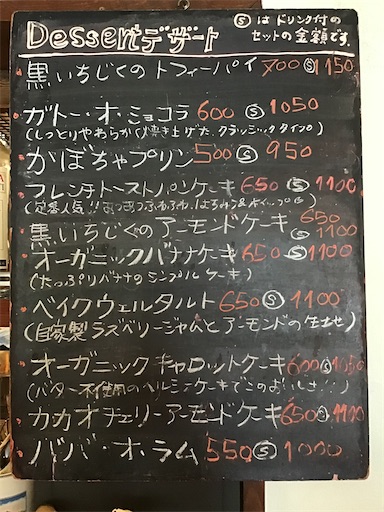 Dessertデザート
Ⓢはドリンク付の
セットの金額です。
黒いちじくのトフィーパイ 700 Ⓢ1150
ガトー・オ・ショコラ 600 Ⓢ 1050
(しっとりやわらかく焼き上げた、クラシックタイプ)
かぼちゃプリン 500 Ⓢ 950
フレンチトーストパンケーキ 650 Ⓢ 1100
(定番人気!!あつあつふわふわ、はちみつ&
黒いちじくのアーモンドケーキ 650
Ⓢ 1100
オーガニックバナナケーキ 650 Ⓢ1100
(たっぷりバナナのシンプルケーキ)
ベイクウェルタルト 650 Ⓢ 1100
(自家製ラズベリージャムとアーモンドの生地)
オーガニックキャロットケーキ 600 Ⓢ1050
(バター不使用のヘルシーケーキでこのおいしさ!!)
カカオチェリーアーモンドケーキ 650 Ⓢ 1100
ババ・オ・ラム 550 Ⓢ 1000